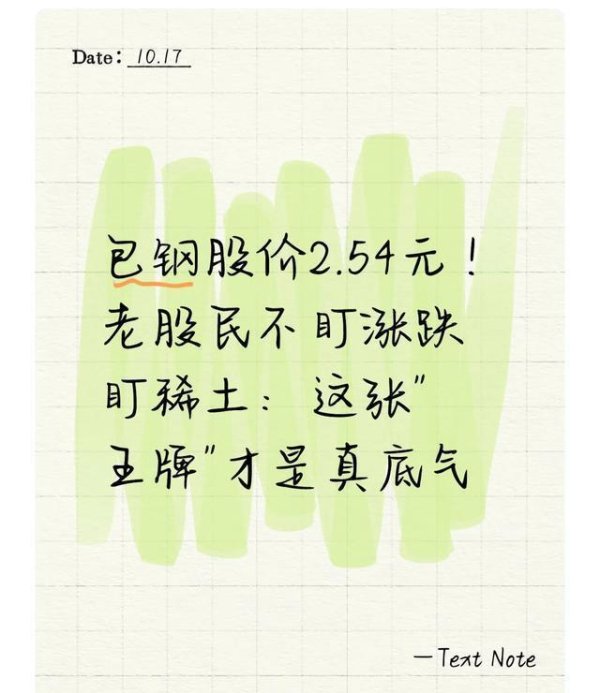 Date: 10.17
包钢股价2.54元！
老股民不盯涨跌
盯稀土：这张"
王牌"才是真底气
—Text Note